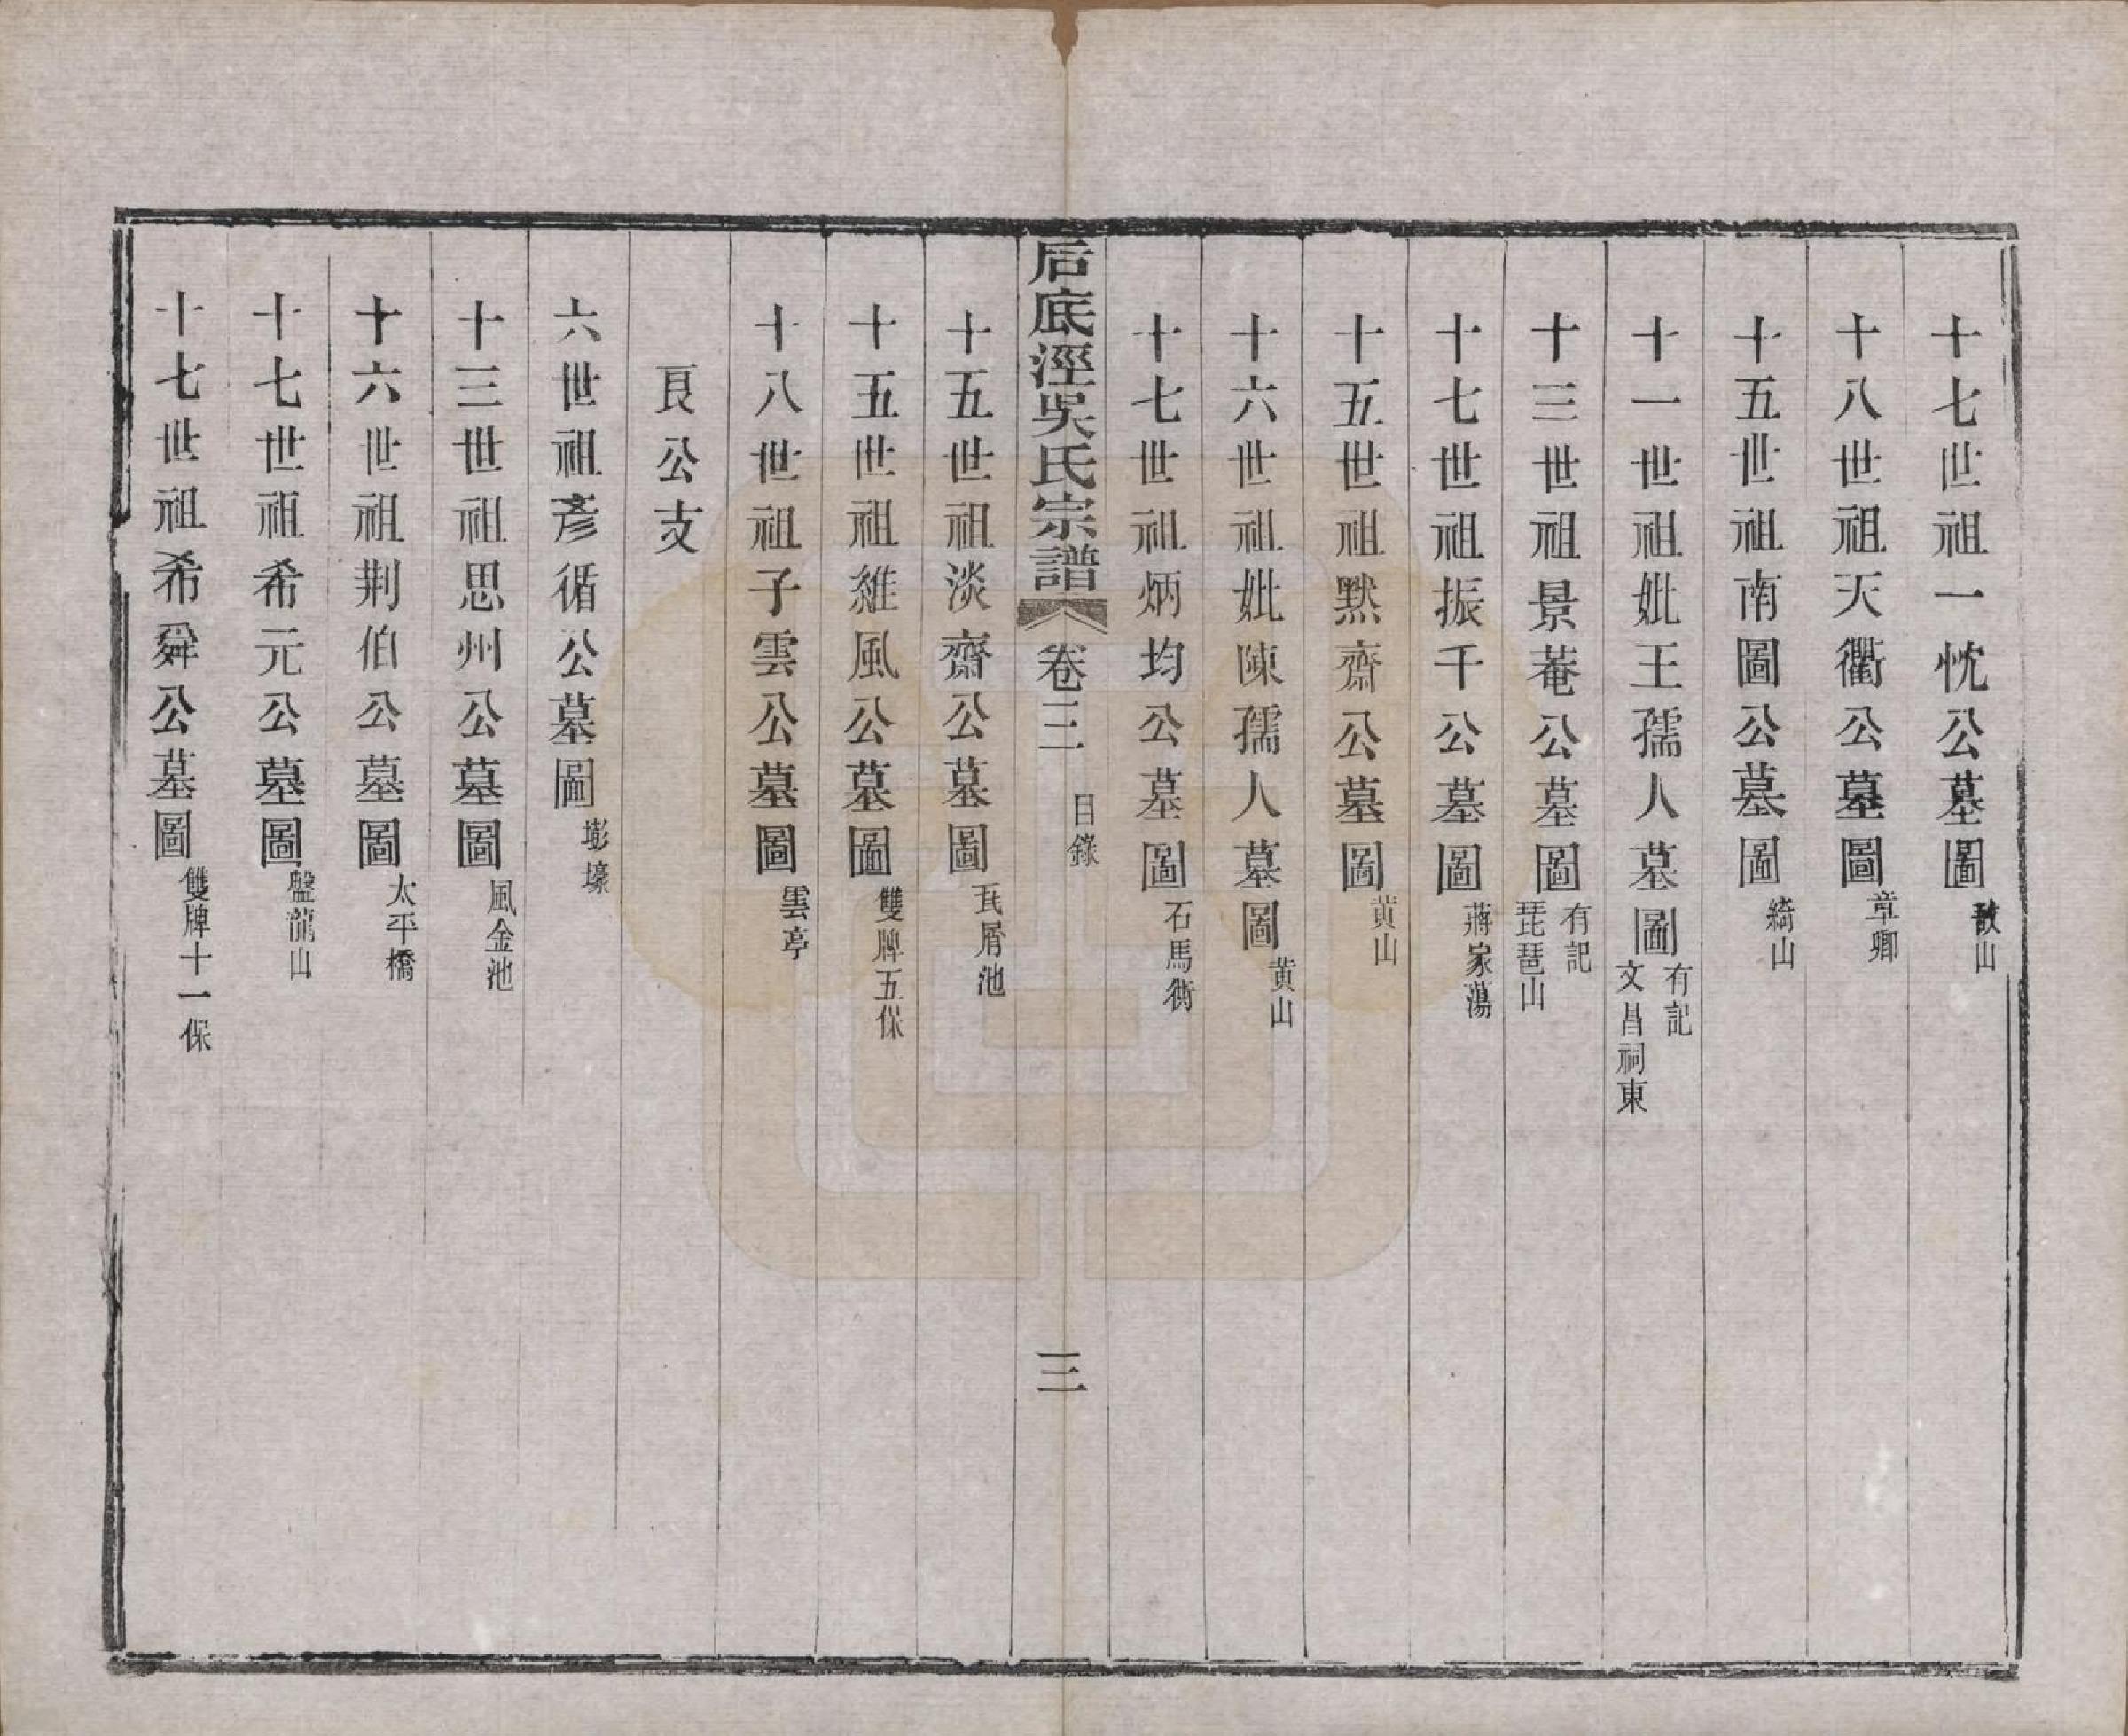 十七世祖一忱公墓圖 敔山
十八世祖天衢公墓圖 章卿
十五世祖南圖公墓圖 綺山
十一世祖妣王孺人墓圖 有記 文昌祠東
十三世祖景菴公墓圖 有記 琵琶山
十七世祖振千公墓圖 蔣家蕩
十五世祖默齋公墓圖 黃山
十六世祖妣陳孺人墓圖 黃山
十七世祖炳均公墓圖 石馬衖
后底涇吳氏宗譜 卷三 目錄 三
十五世祖淡齋公墓圖 瓦屑池
十五世祖維風公墓圖 雙牌五保
十八世祖子雲公墓圖 雲亭
良公支
六世祖彥循公墓圖 壕
十三世祖思州公墓圖 風金池
十六世祖荆伯公墓圖 太平橋
十七世祖希元公墓圖 盤龍山
十七世祖希舜公墓圖 雙牌十一保